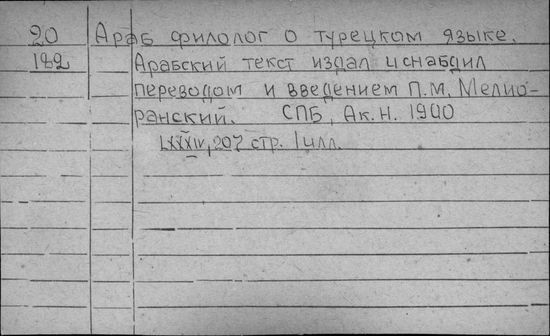 20 Араб филолог о турецком языке.
122 Арабский текст издал и снабдил
переводом и введением П.М. Мелио-
ранский. СПБ, Ак.Н. 1900
LXXXIV, 207 стр. 1 илл.